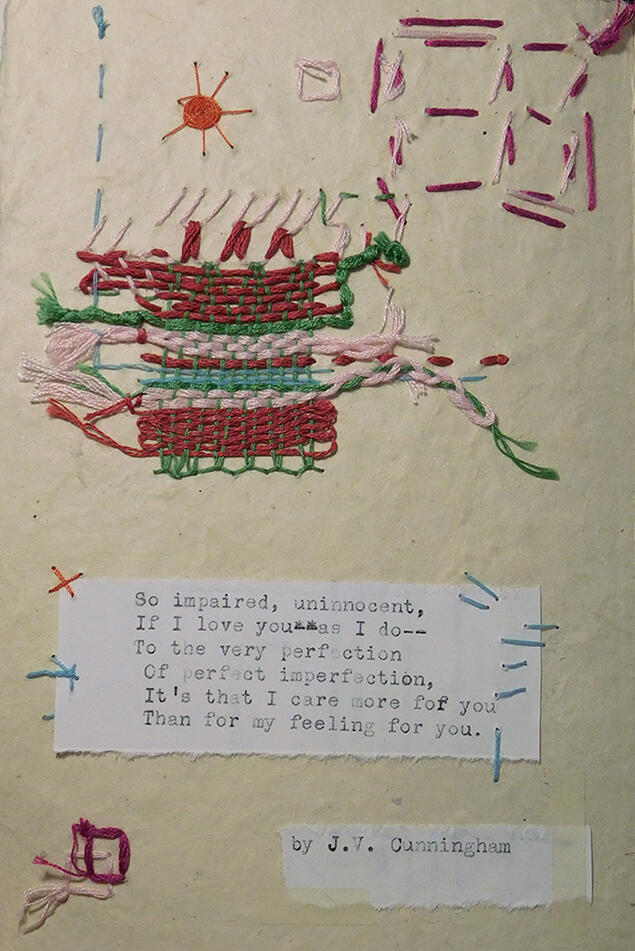 So impaired, uninnocent,
If I love you**as I do--
To the very perfection
Of perfect imperfection,
It's that I care more for you
Than for my feeling for you.
by J.V. Cunningham